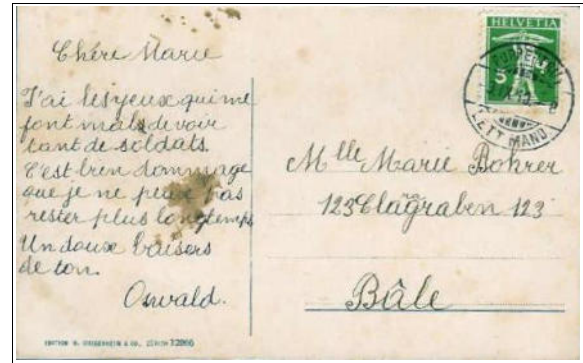 Chère Marie
J'ai les yeux qui me
font mals de voir
tant de soldats.
C'est bien dommage
que je ne peux pas
rester plus longtemps
Un doux baisers
de ton.
Oswald.
HELVETIA
5
Mlle Marie Bohrer
123 Claragraben 123
Bâle
12966